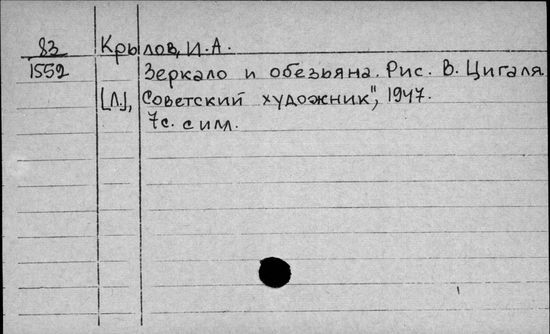 83 Крылов, И.А.
1552 Зеркало и обезьяна. Рис. В. Цигаля
[Л.], Советский художник", 1947.
7с. с илл.